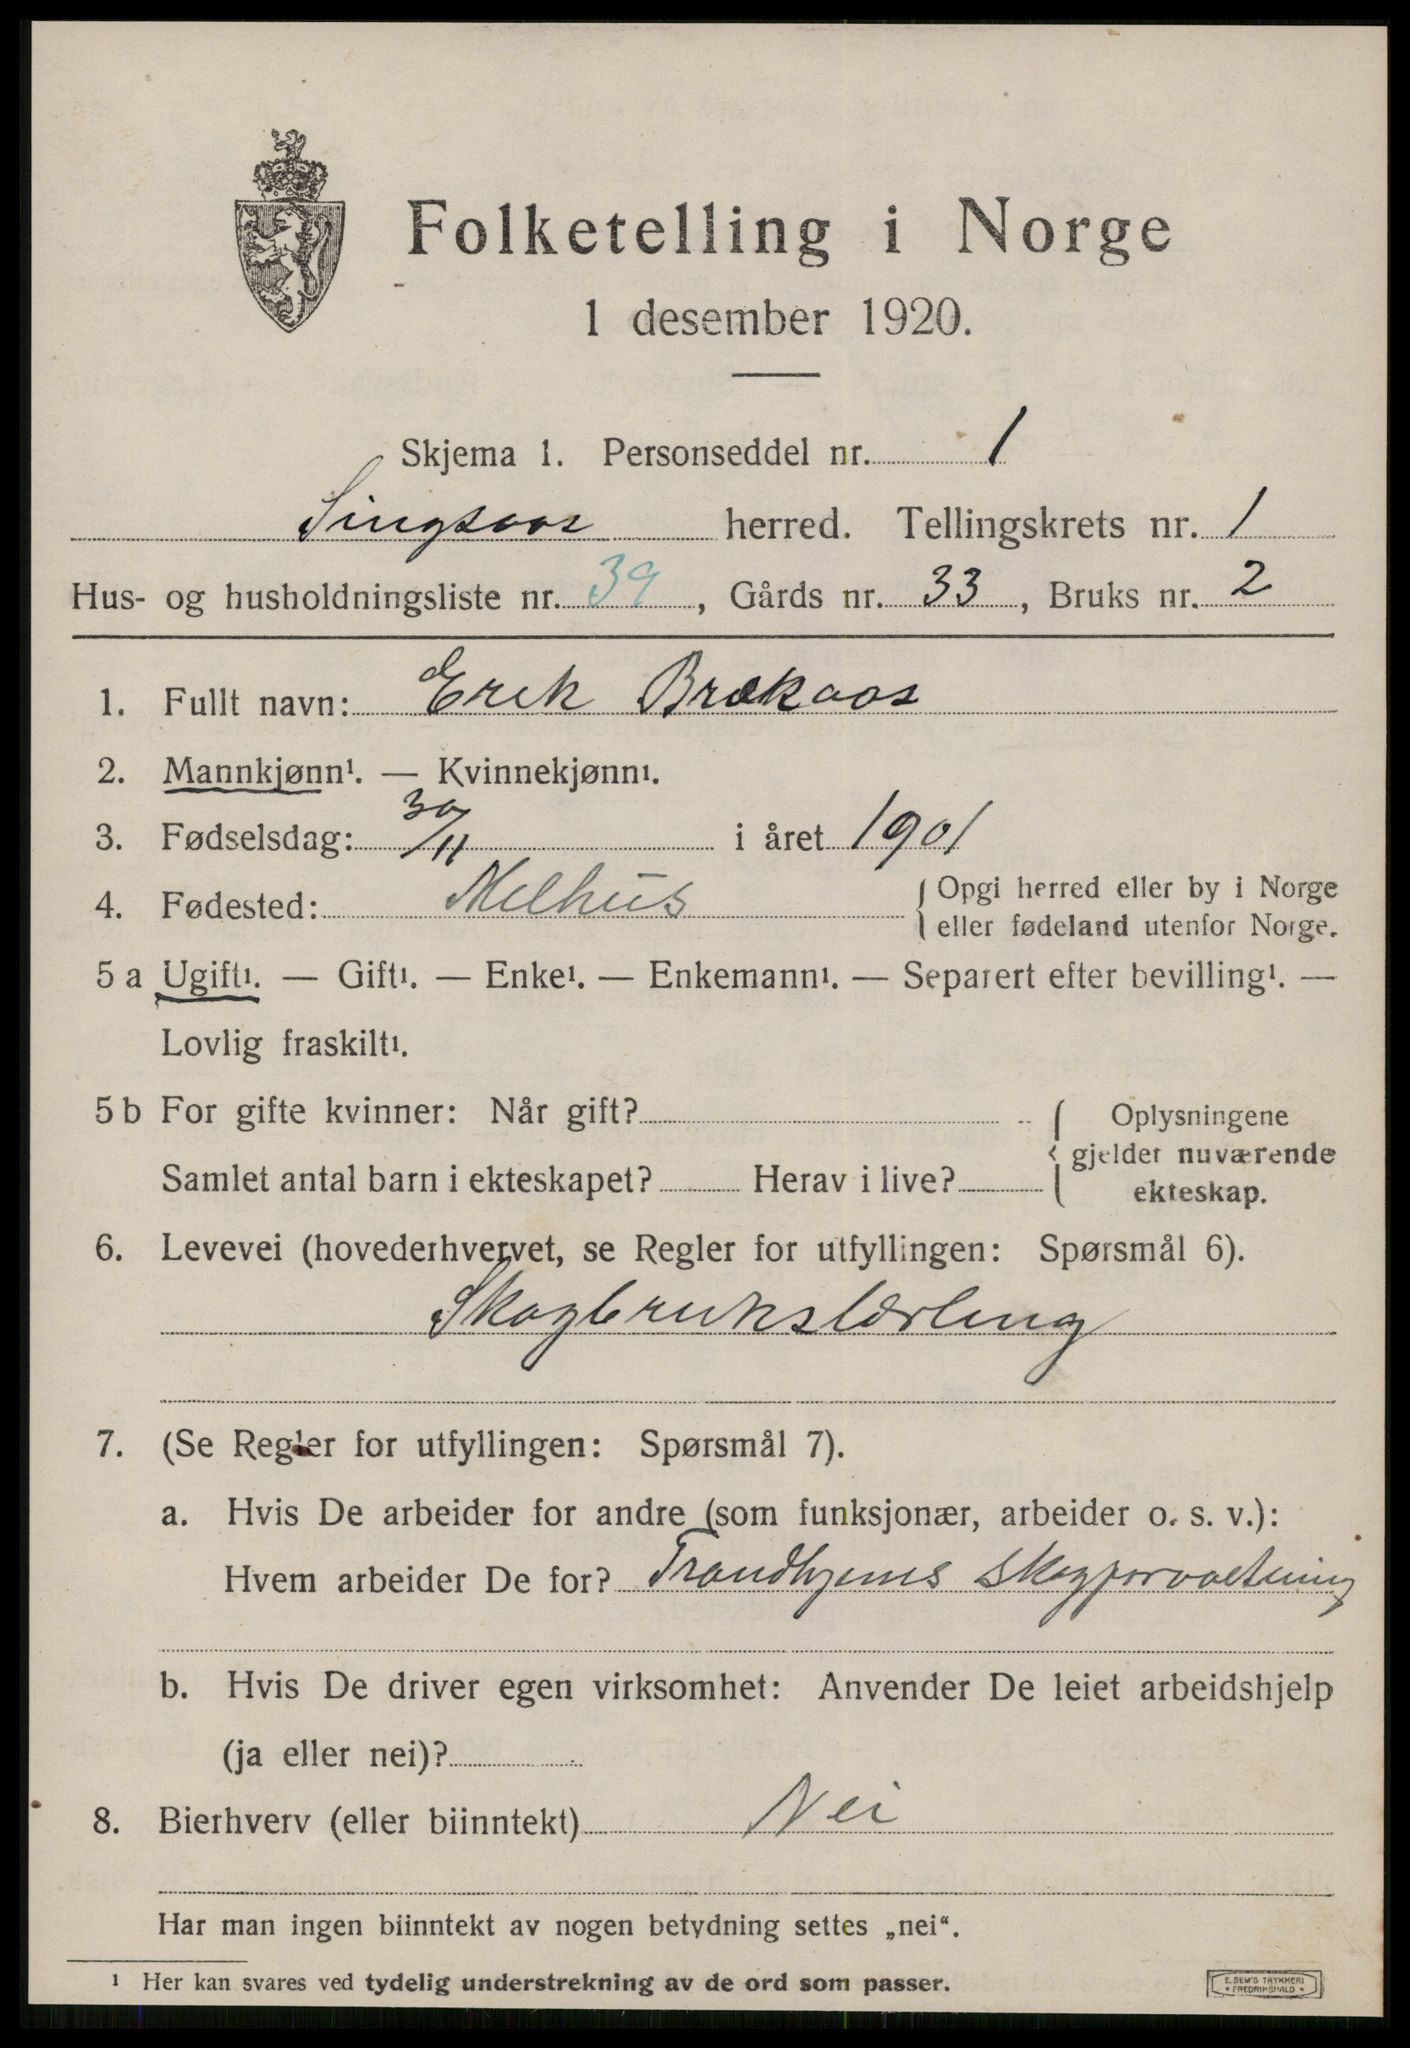 Folketelling i Norge
1 desember 1920.
Skjema 1. Personseddel nr. 1
Singsaas herred. Tellingskrets nr. 1
Hus- og husholdningsliste nr. 39, Gårds nr. 33, Bruks nr. 2
1. Fullt navn: Erik Brækaas
2. Mannkjønn¹. — Kvinnekjønn¹.
3. Fødselsdag: 30/11 i året 1901
4. Fødested: Melhus { Opgi herred eller by i Norge
eller fødeland utenfor Norge.
5 a Ugift¹. — Gift¹. — Enke¹. — Enkemann¹. — Separert efter bevilling¹. —
Lovlig fraskilt¹.
5 b For gifte kvinner: Når gift? { Oplysningene
gjelder nuværende
Samlet antal barn i ekteskapet? Herav i live? ekteskap.
6. Levevei (hovederhvervet, se Regler for utfyllingen: Spørsmål 6).
Skogbrukslærling
7. (Se Regler for utfyllingen: Spørsmål 7).
a. Hvis De arbeider for andre (som funksjonær, arbeider o. s. v.):
Hvem arbeider De for? Trondhjems skogforvaltning
b. Hvis De driver egen virksomhet: Anvender De leiet arbeidshjelp
(ja eller nei)?
8. Bierhverv (eller biinntekt) Nei
Har man ingen biinntekt av nogen betydning settes „nei“.
¹ Her kan svares ved tydelig understrekning av de ord som passer.
E. SEM'S TRYKKERI
* FREDRIKSHALD *